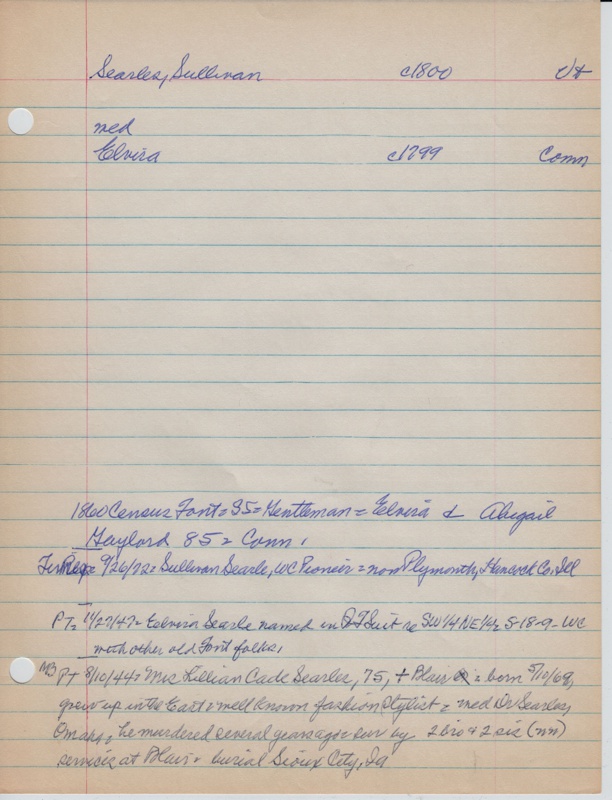 Searles, Sullivan c1800 Vt
med
Elvira c1799 Conn
1860 Census Font = 35 = Gentleman = Elvira & Abigail
Gaylord 85 = Conn.
9/26/72 = Sullivan Searle, WC Pioneer = now Plymouth, Hancock Co. Ill
PT = 11/27/47 = Eelvira Searle named in QT Suit re SW 1/4 NE 1/4 S-18-9 - WC
with other old Font folks,
MB Pt 8/10/44 = Mrs Lillian Cade Searles, 75, + Blair = born 5/10/69,
grew up in the East = well known fashion stylist = med Dr Searles,
Omaha, he murdered several years ago = sur by 2 bro & 2 sis (nn)
services at Blair = burial Sioux City, Ia